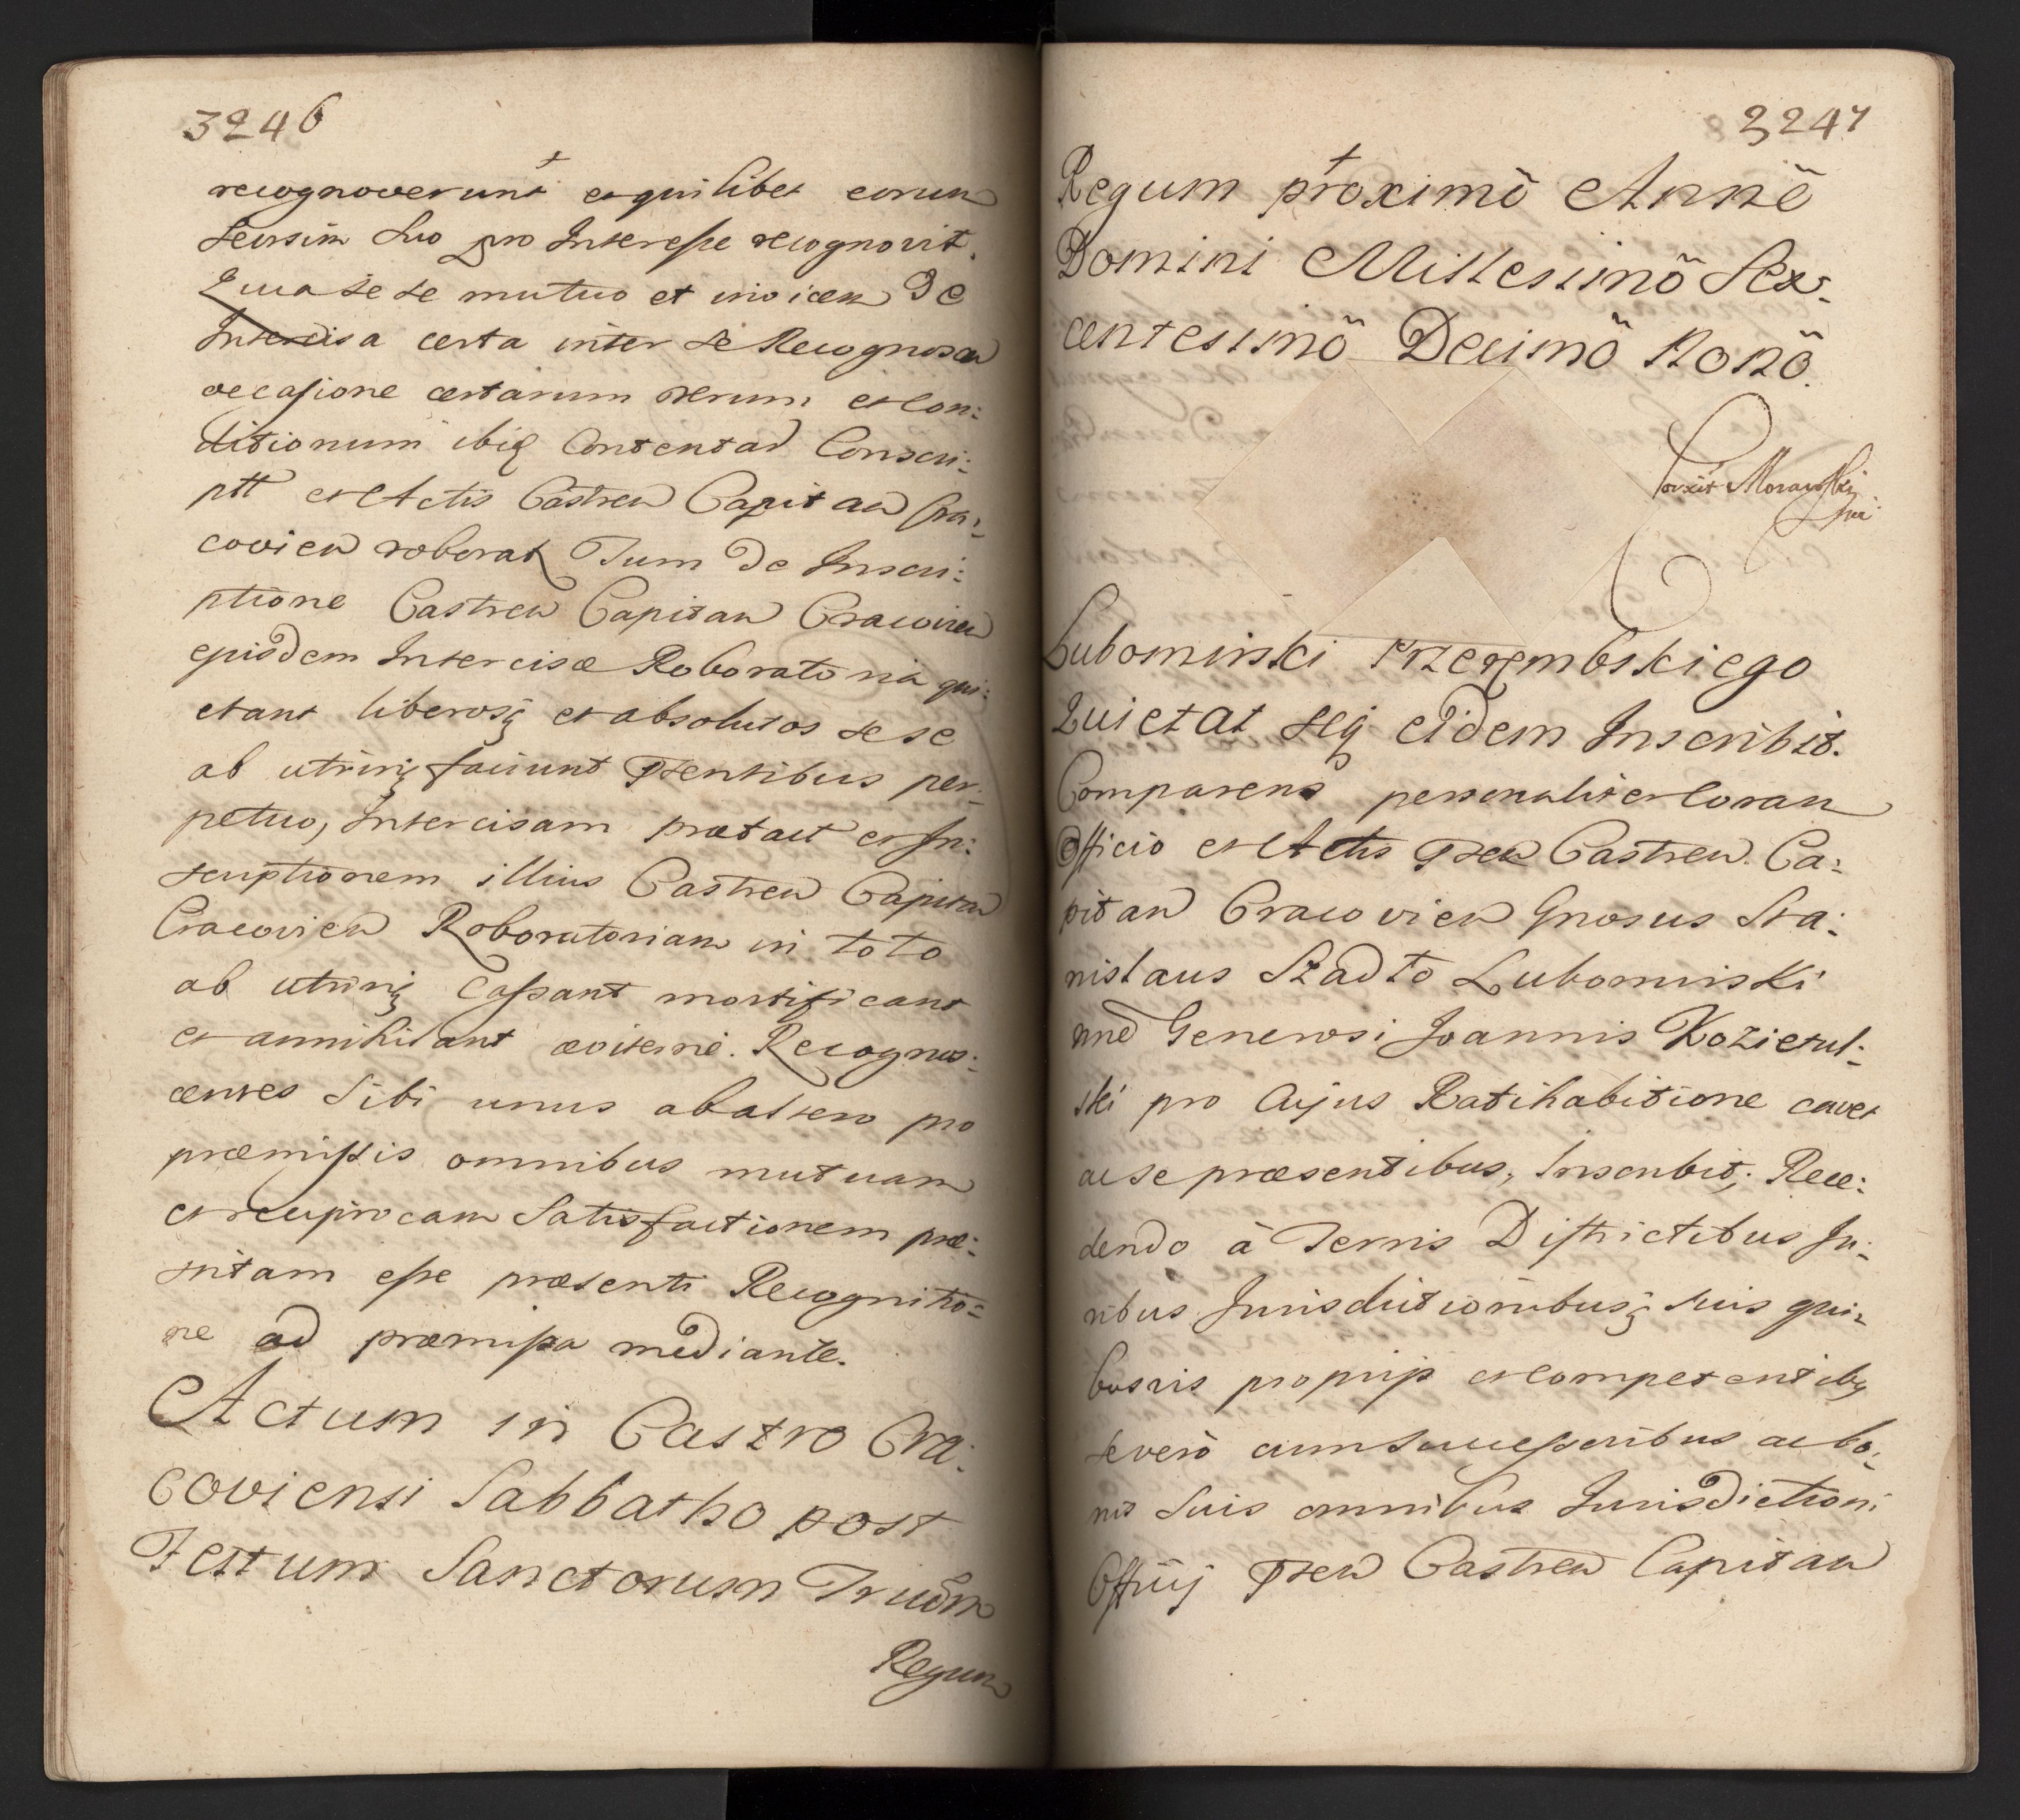 3246
recognoverunt et quilibet eorum
seorsim suo pro Interesse recognovit.
Quia sese mutuo et invicem de
Intercisa certa inter se Recognosa
occasione certarum rerum et Con:
ditionum ibiq Contentar Conscri:
ptt et Actis Castren Capitan Cra:
covien roborat Tum de Inscri:
ptione Castren Capitan Cracovien
ejusdem Intercisæ Roboratoria qui:
etant liberosq et absolutos sese
ab utrinq faciunt Pſentibus per:
petuo, Intercisam prætact et In:
scriptionem illius Castren Capitan
Cracovien Roboratoriam in toto
ab utrinq Caſsant mortificant
et annihilant æviterne. Recognos:
centes Sibi unus ab altero pro
præmiſsis omnibus mutuam
et reciprocam Satisfactionem præ:
stitam eſse præsenti Recognitio:
ne ad præmiſsa mediante.
Actum in Castro Cra:
coviensi Sabbatho post
Festum Sanctorum Trium
Regum
3247
Regum proximo Anno
Domini Millesimo Sex:
centesimo Decimo Nono.
Morawski
Lubominski Przerembskiego
Quietat seq eidem Inscribit.
Comparens personaliter Coram
Officio et Actis Pſen Castren. Ca:
pitan Cracovien Gnosus Sta:
nislaus Szadto Lubominski
nne Generosi Joannis Kozierul:
ski pro Cujus Ratihabitione cavet
ac se præsentibus, Inscribit; Rece:
dendo à Terris Districtibus Ju:
ribus Jurisdictionibusq suis qui:
busvis proprijs et Competentibq
se vero cum Succeſsoribus ac bo:
nis Suis omnibus Jurisdictioni
Officij Pſen Castren Capitan